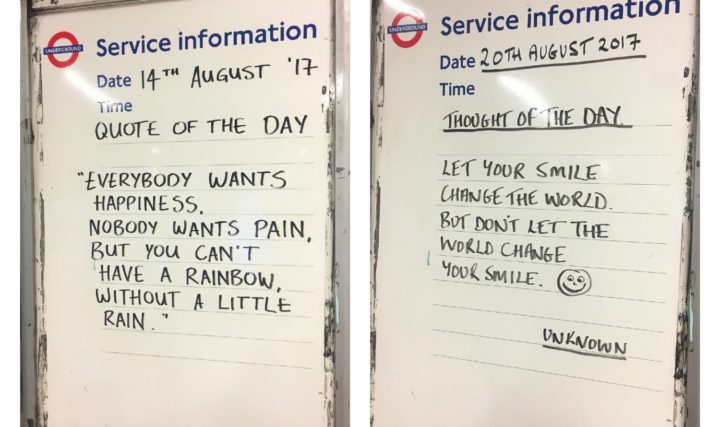 UNDERGROUND
Service information
Date 14TH AUGUST '17
Time
QUOTE OF THE DAY
"EVERYBODY WANTS
HAPPINESS,
NOBODY WANTS PAIN,
BUT YOU CAN'T
HAVE A RAINBOW,
WITHOUT A LITTLE
RAIN."
UNDERGROUND
Service information
Date 20TH AUGUST 2017
Time
THOUGHT OF THE DAY.
LET YOUR SMILE
CHANGE THE WORLD.
BUT DON'T LET THE
WORLD CHANGE
YOUR SMILE.
UNKNOWN